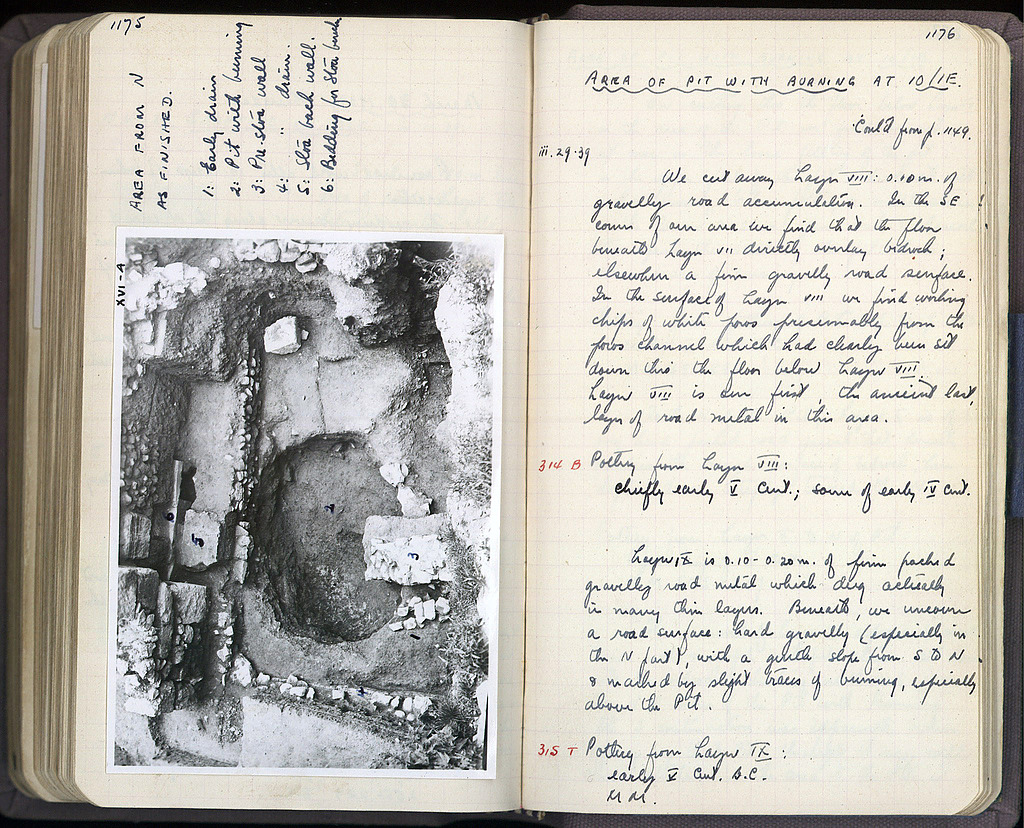 1175
AREA FROM N
AS FINISHED.
1: Early drain
2: Pit with burning
3: Pre-stoa wall
4: " drain.
5: Stoa back wall.
6: Bedding for Stoa bench
XVI-4
6
5
2
3
1176
AREA OF PIT WITH BURNING AT 10/IE.
Cont'd from p. 1149.
iii.29.39
We cut away Layer VIII: 0.10 m. of
gravelly road accumulation. In the SE
corner of our area we find that the floor
beneath Layer VII directly overlay bedrock;
elsewhere a firm gravelly road surface.
In the surface of Layer VIII we find working
chips of white poros presumably from the
poros channel which had clearly been set
down thro the floor below Layer VIII.
Layer VIII is our first, the ancient last,
layer of road metal in this area.
314 B Pottery from Layer VIII:
chiefly early V Cent.; some of early IV Cent.
Layer IX is 0.10-0.20 m. of firm packed
gravelly road metal which dug actually
in many thin layers. Beneath, we uncover
a road surface: hard gravelly (especially in
the N part), with a gentle slope from S to N
& marked by slight traces of burning, especially
above the Pit.
315 T Pottery from Layer IX:
early V Cent. B.C.